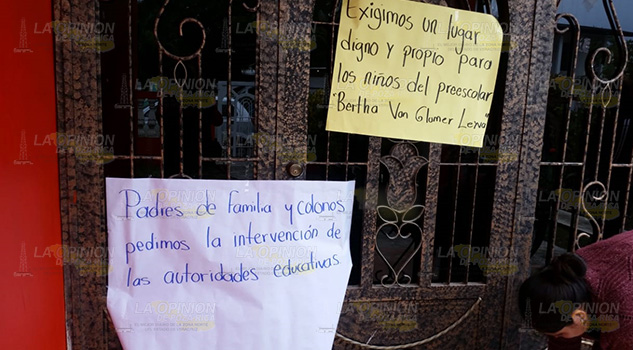 Exigimos un lugar
digno y propio para
los niños del preescolar
"Bertha Von Glomer Leyva"
Padres de familia y colonos
pedimos la intervención de
las autoridades educativas.
LA OPINIÓN